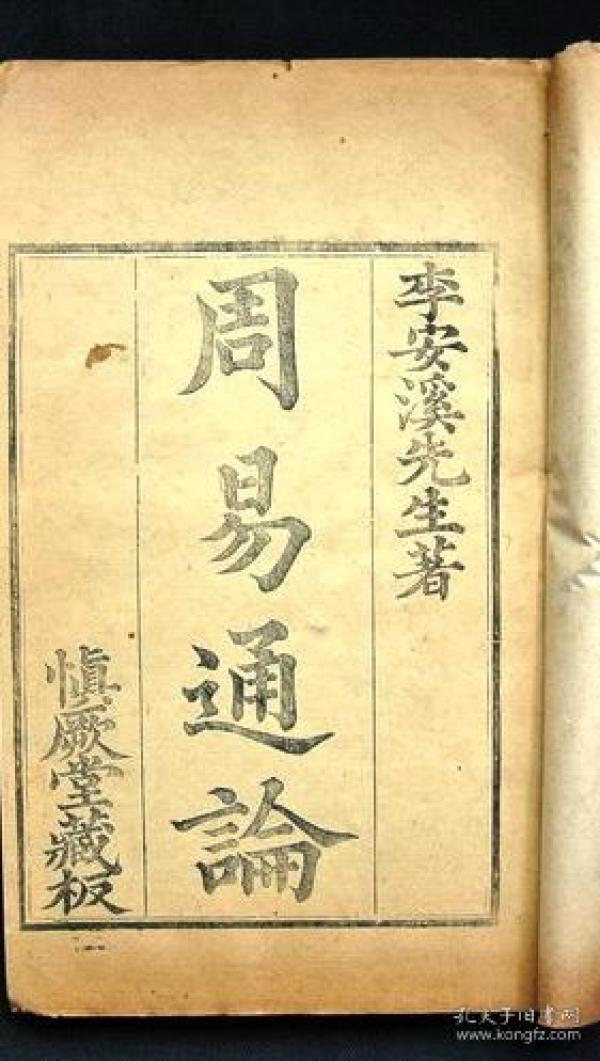 李安溪先生著
周易通論
慎厥堂藏板
孔夫子旧书网
www.kongfz.com